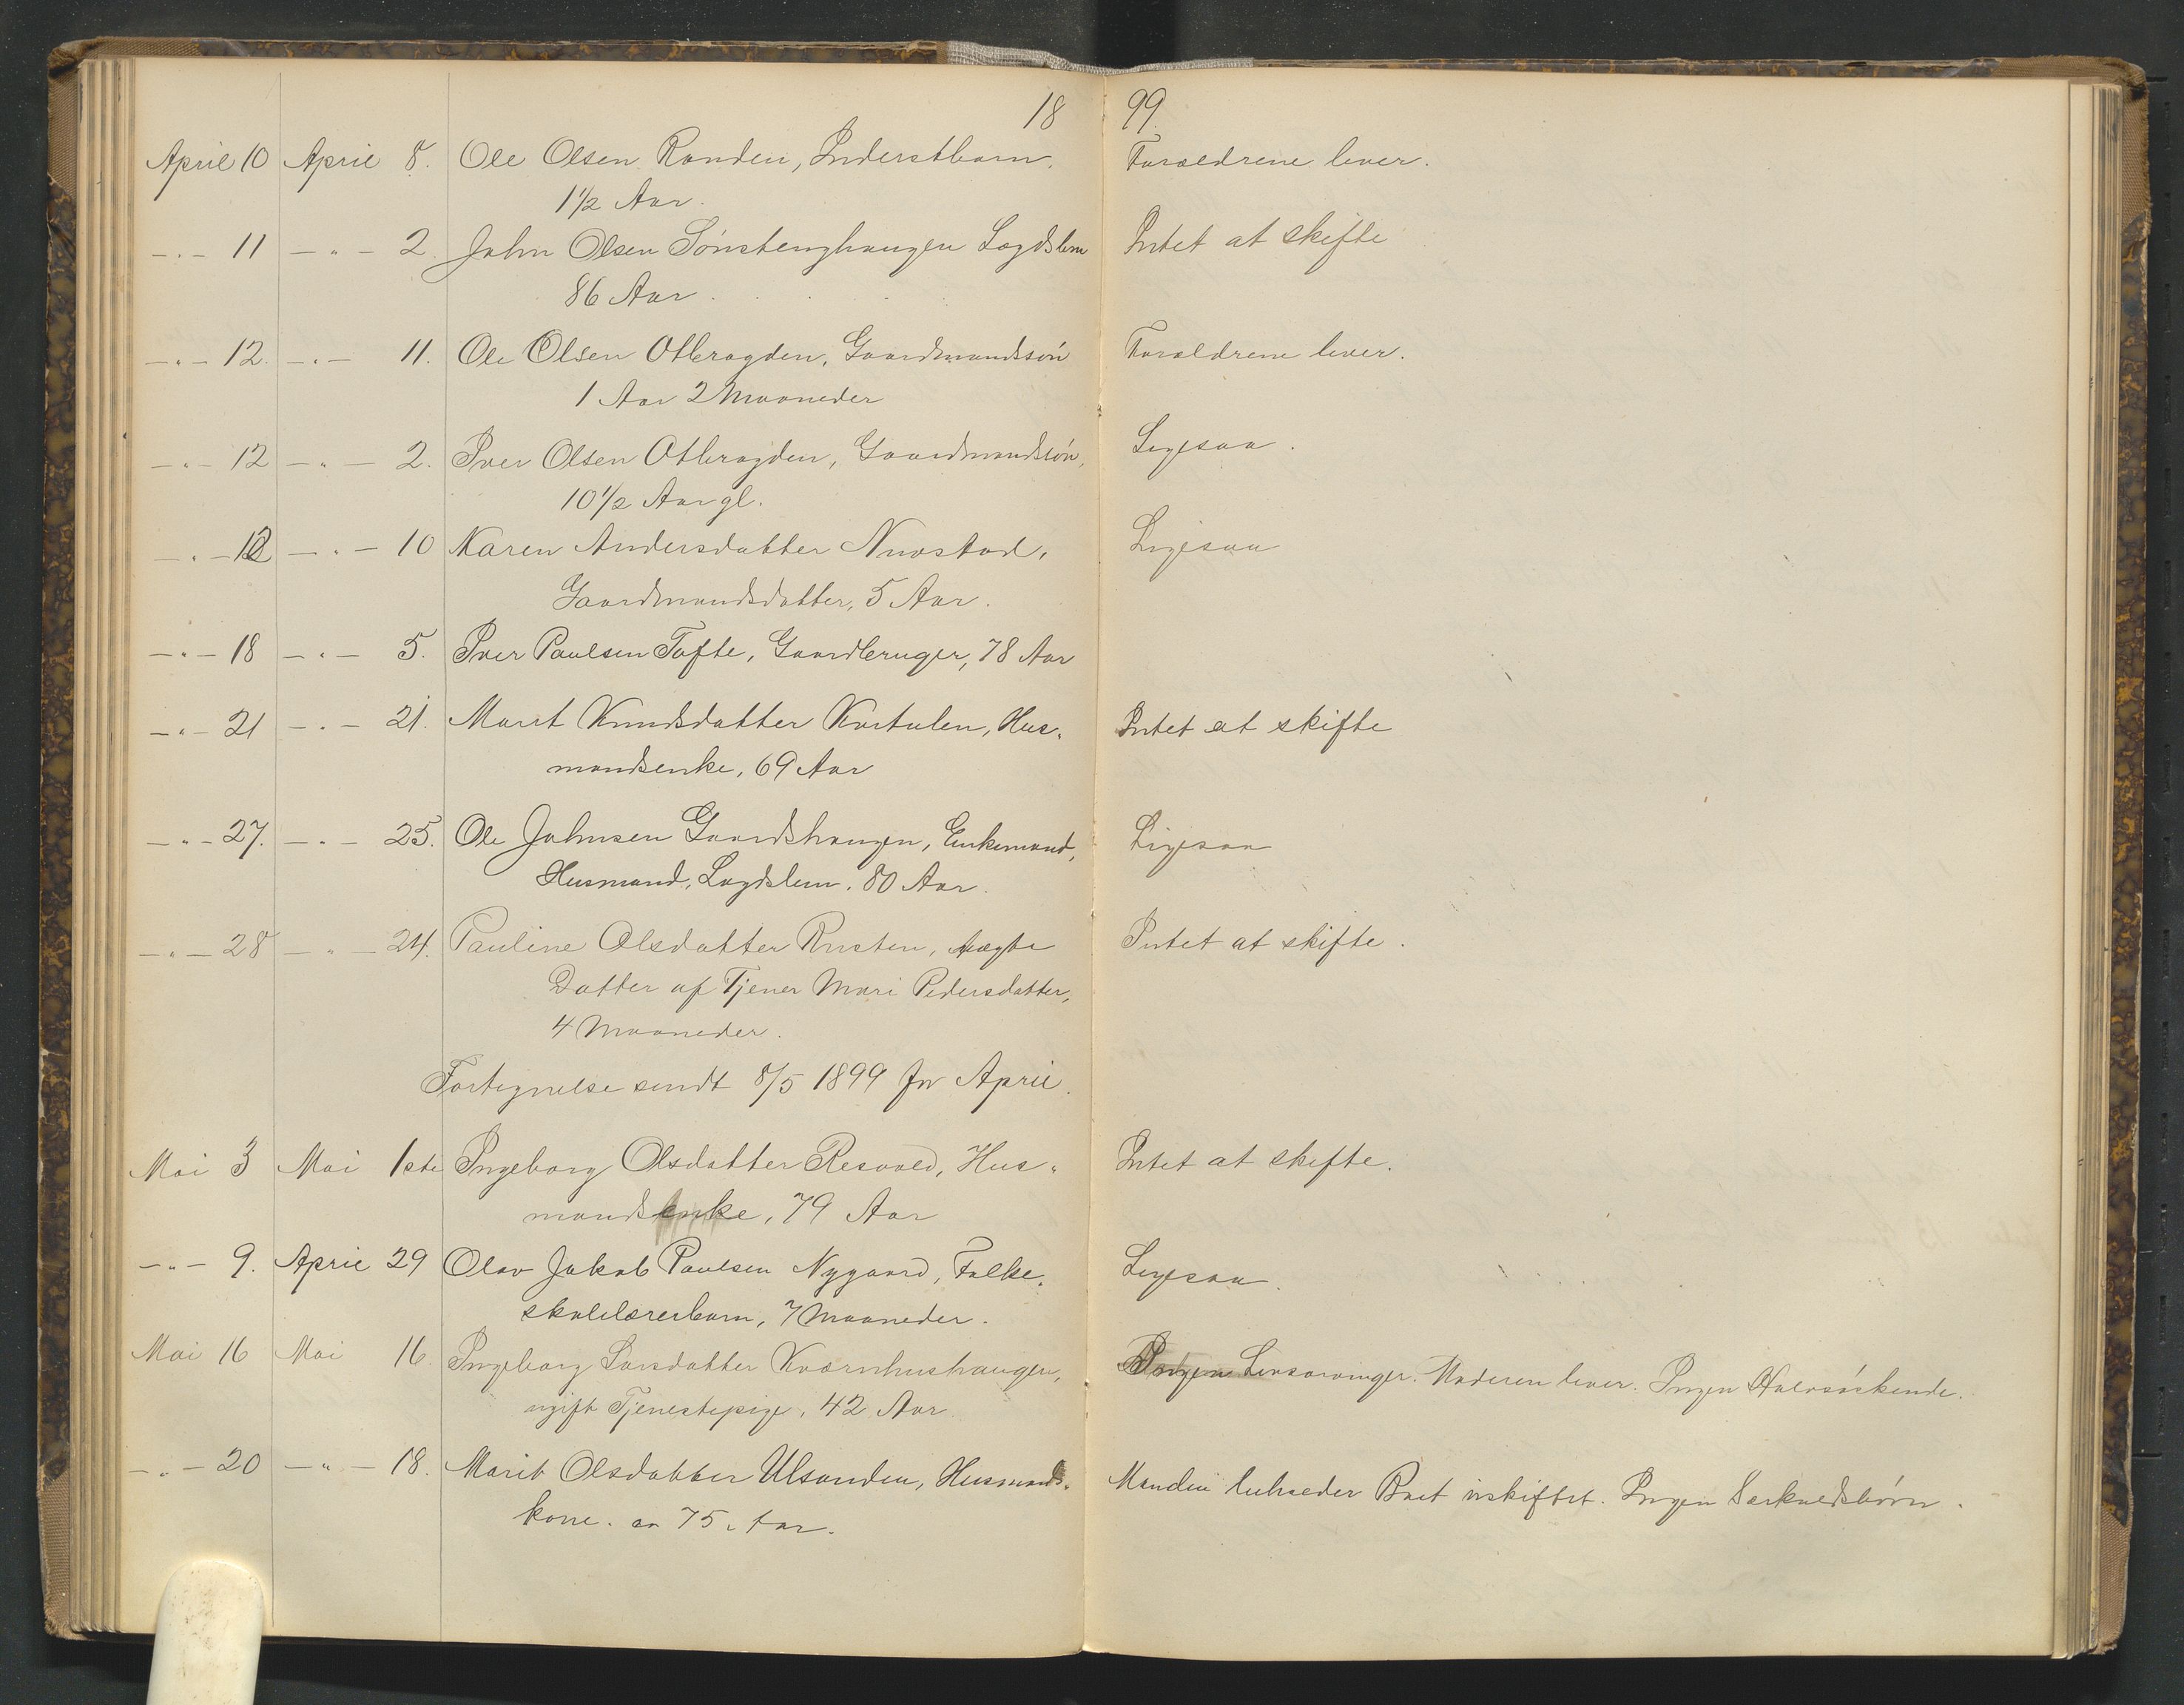 18 99.
April 10 April 8. Ole Olsen Randen, Inderstbarn. Forældrene lever.
1½ Aar.
-"- 11 -"- 2. John Olsen Sønstenghaugen Lægdslem Intet at skifte
86 Aar.
-"- 12. -"- 11. Ole Olsen Otbragden, Gaardmandssøn Forældrene lever.
1 Aar 2 Maaneder
-"- 12 -"- 2. Iver Olsen Otbragden, Gaardmandssøn, Ligesaa.
10½ Aar gl.
-"- 12 -"- 10 Karen Andersdatter Nustad, Ligesaa
Gaardmandsdatter, 5 Aar.
-"- 18 -"- 5. Iver Paulsen Tofte, Gaardbruger, 78 Aar
-"- 21 -"- 21. Marit Knudsdatter Hus- Intet at skifte
mandsenke, 69 Aar
-"- 27. -"- 25. Ole Johnsen Gaardshaugen, Enkemand, Ligesaa
Husmand, Lægdslem. 80 Aar.
-"- 28 -"- 24. Pauline Olsdatter Rusten, uægte Intet at skifte.
Datter af Tjener Mari Pedersdatter,
4 Maaneder.
Fortegnelse sendt 8/5 1899 for April.
Mai 3 Mai 1ste Ingeborg Olsdatter Hus- Intet at skifte.
mandsenke, 79 Aar
-"- 9. April 29 Olav Jakob Paulsen Nygaard, Folke- Ligesaa.
skolelærerbarn, 7 Maaneder.
Mai 16 Mai 16. Ingeborg Larsdatter Kværnhushaugen, Ingen Livsarvinger. Moderen lever. Ingen Halvsøskende.
ugift Tjenestepige, 42 Aar
-"- 20 -"- 18. Marit Olsdatter Ulsanden, Husmands- Manden hensidder Boet uskiftet. Ingen Særkuldsbørn.
kone. 75 Aar.